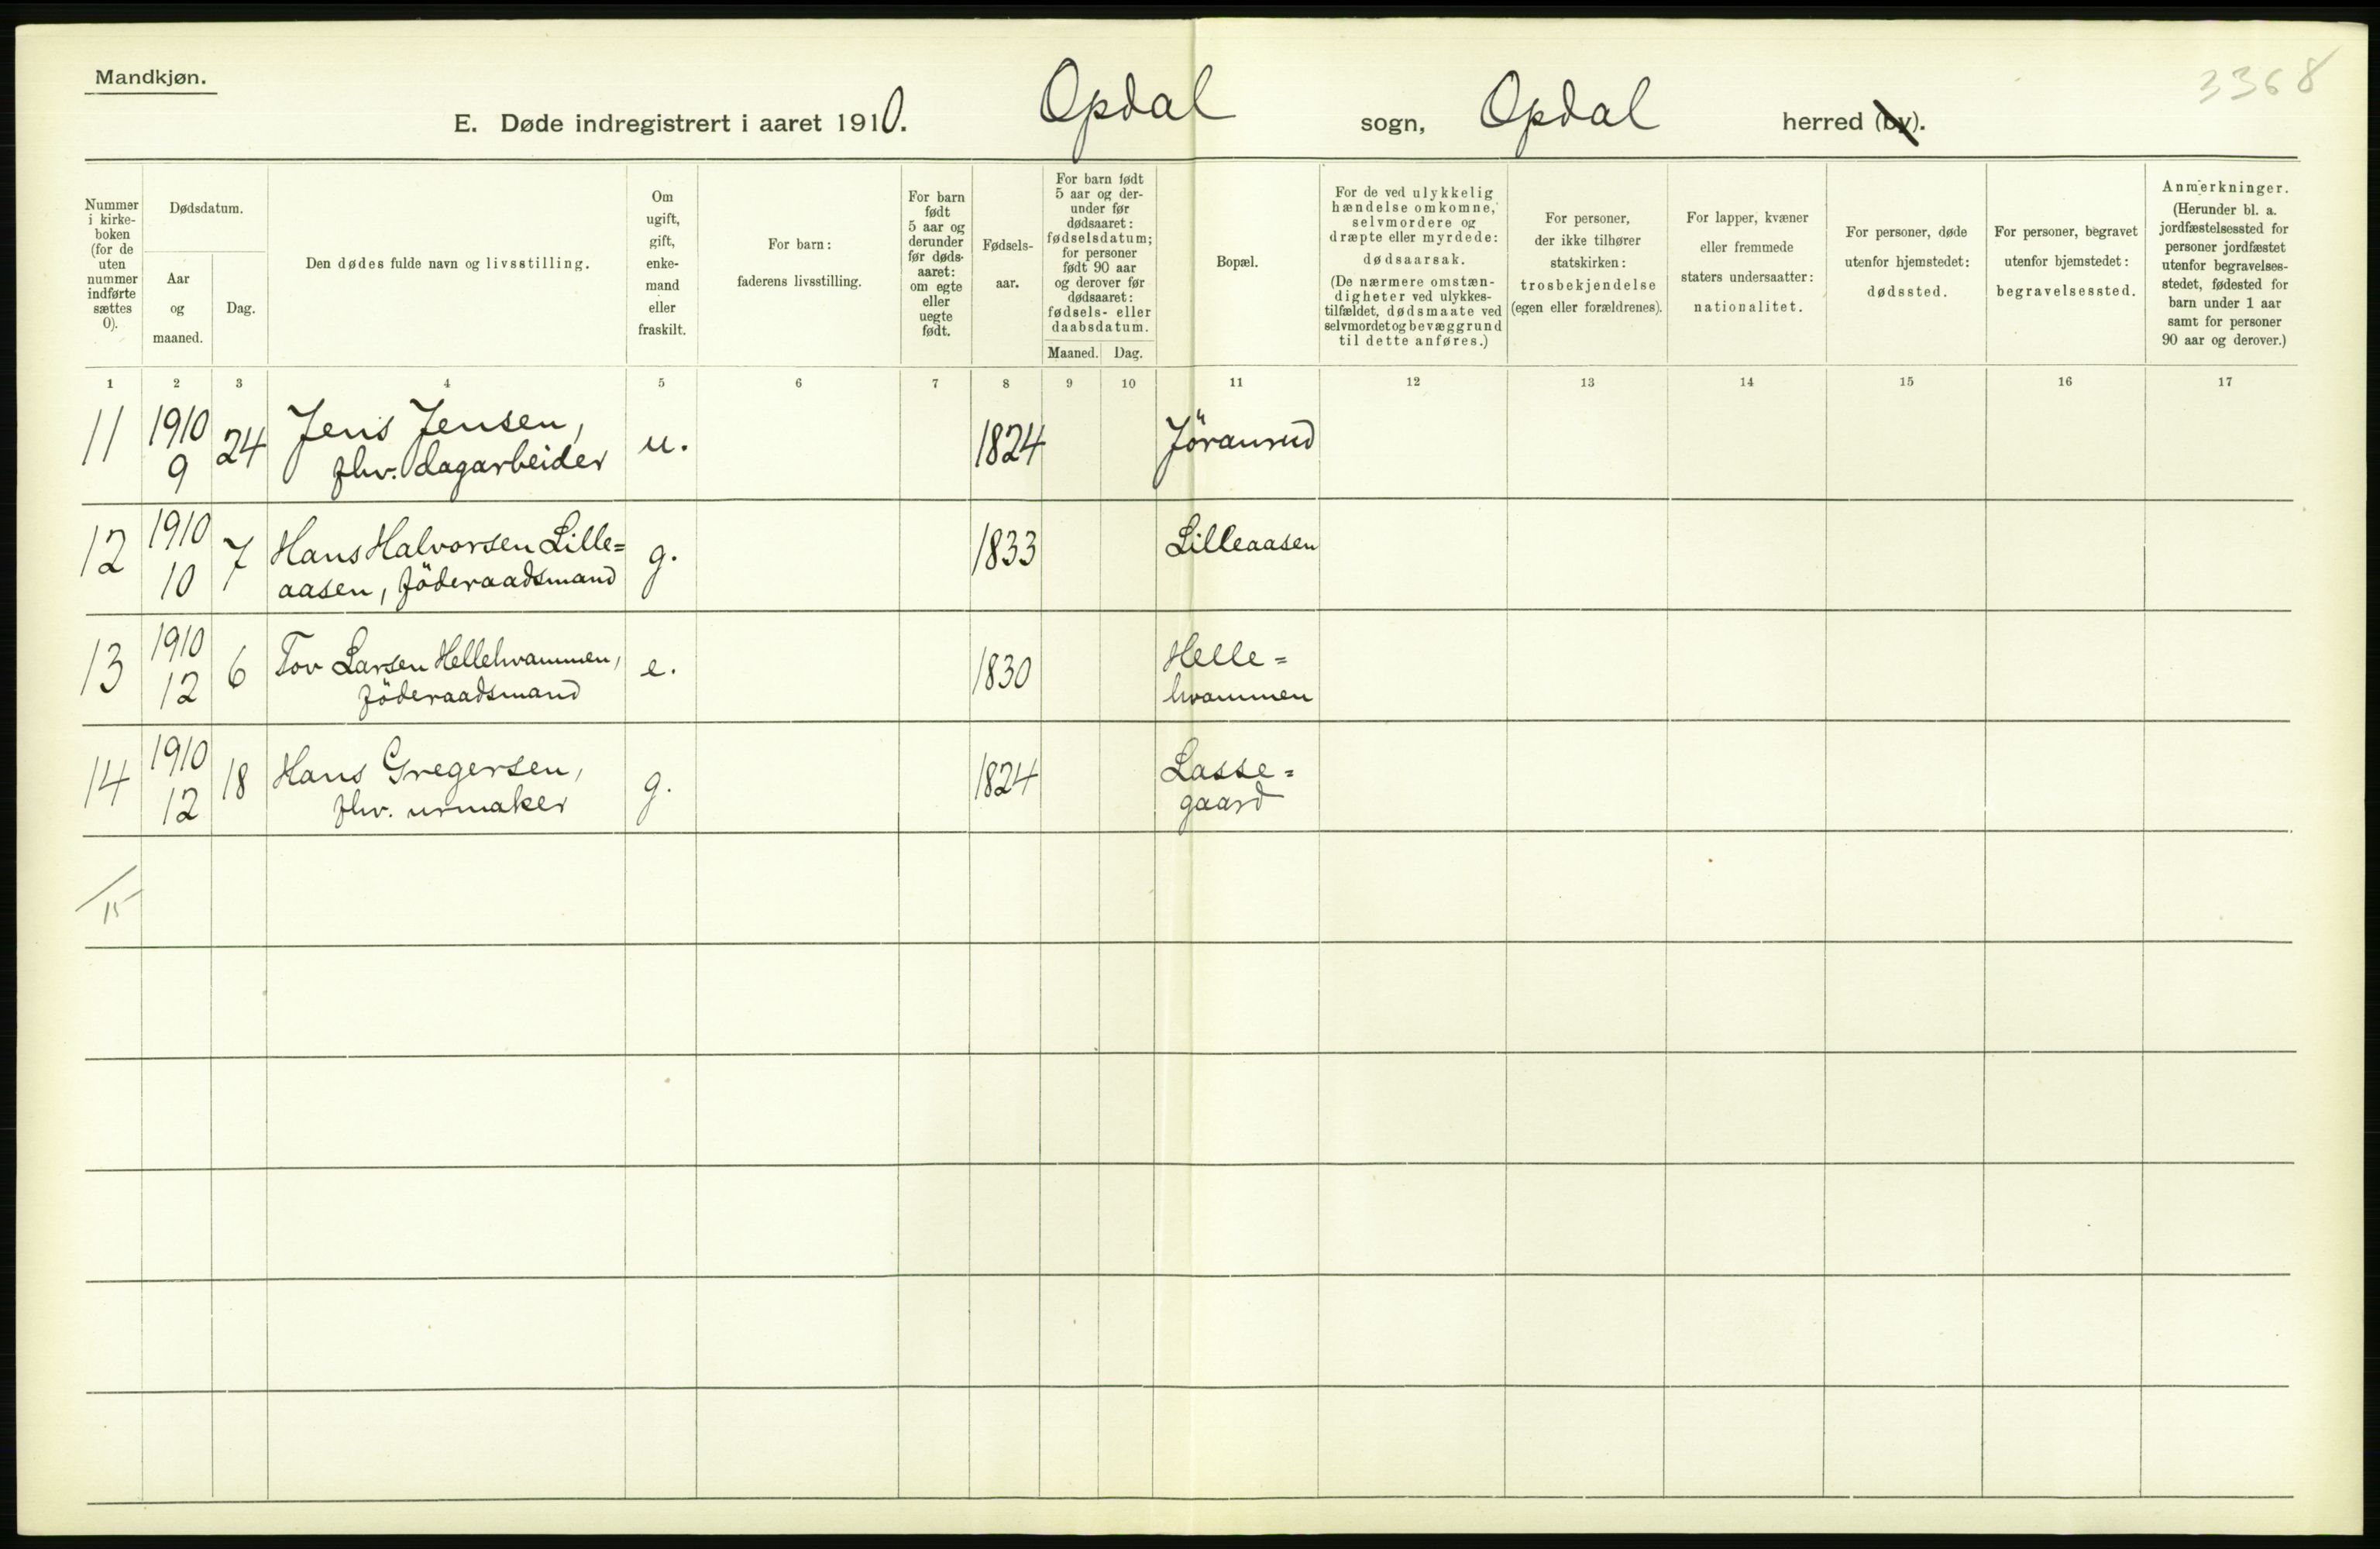 Mandkjøn.
3368
E. Døde indregistrert i aaret 1910. Opdal sogn, Opdal herred (by).
Nummer i kirke-boken (for de uten nummer indførte sættes 0).
Dødsdatum.
Aar og maaned.
Dag.
Den dødes fulde navn og livsstilling.
Om ugift, gift, enke-mand eller fraskilt.
For barn: faderens livsstilling.
For barn født 5 aar og derunder før døds-aaret: om egte eller uegte født.
Fødsels-aar.
For barn født 5 aar og der-under før dødsaaret: fødselsdatum; for personer født 90 aar og derover før dødsaaret: fødsels- eller daabsdatum.
Maaned. Dag.
Bopæl.
For de ved ulykkelig hændelse omkomne, selvmordere og dræpte eller myrdede: dødsaarsak.
(De nærmere omstæn-digheter ved ulykkes-tilfældet, dødsmaate ved selvmordet og bevæggrund til dette anføres.)
For personer, der ikke tilhører statskirken: trosbekjendelse (egen eller forældrenes).
For lapper, kvæner eller fremmede staters undersaatter: nationalitet.
For personer, døde utenfor hjemstedet: dødssted.
For personer, begravet utenfor hjemstedet: begravelsessted.
Anmerkninger.
(Herunder bl. a. jordfæstelsessted for personer jordfæstet utenfor begravelses-stedet, fødested for barn under 1 aar samt for personer 90 aar og derover.)
1 2 3 4 5 6 7 8 9 10 11 12 13 14 15 16 17
11 1910 9 24 Jens Jensen, u. 1824 Jöranrud
fhv. dagarbeider
12 1910 10 7 Hans Halvorsen Lille= g. 1833 Lilleaasen
aasen, föderaadsmand
13 1910 12 6 Tov Larsen Hellehvammen, e. 1830 Helle=
föderaadsmand hvammen
14 1910 12 18 Hans Gregersen, g. 1824 Lasse=
fhv. urmaker gaard
15